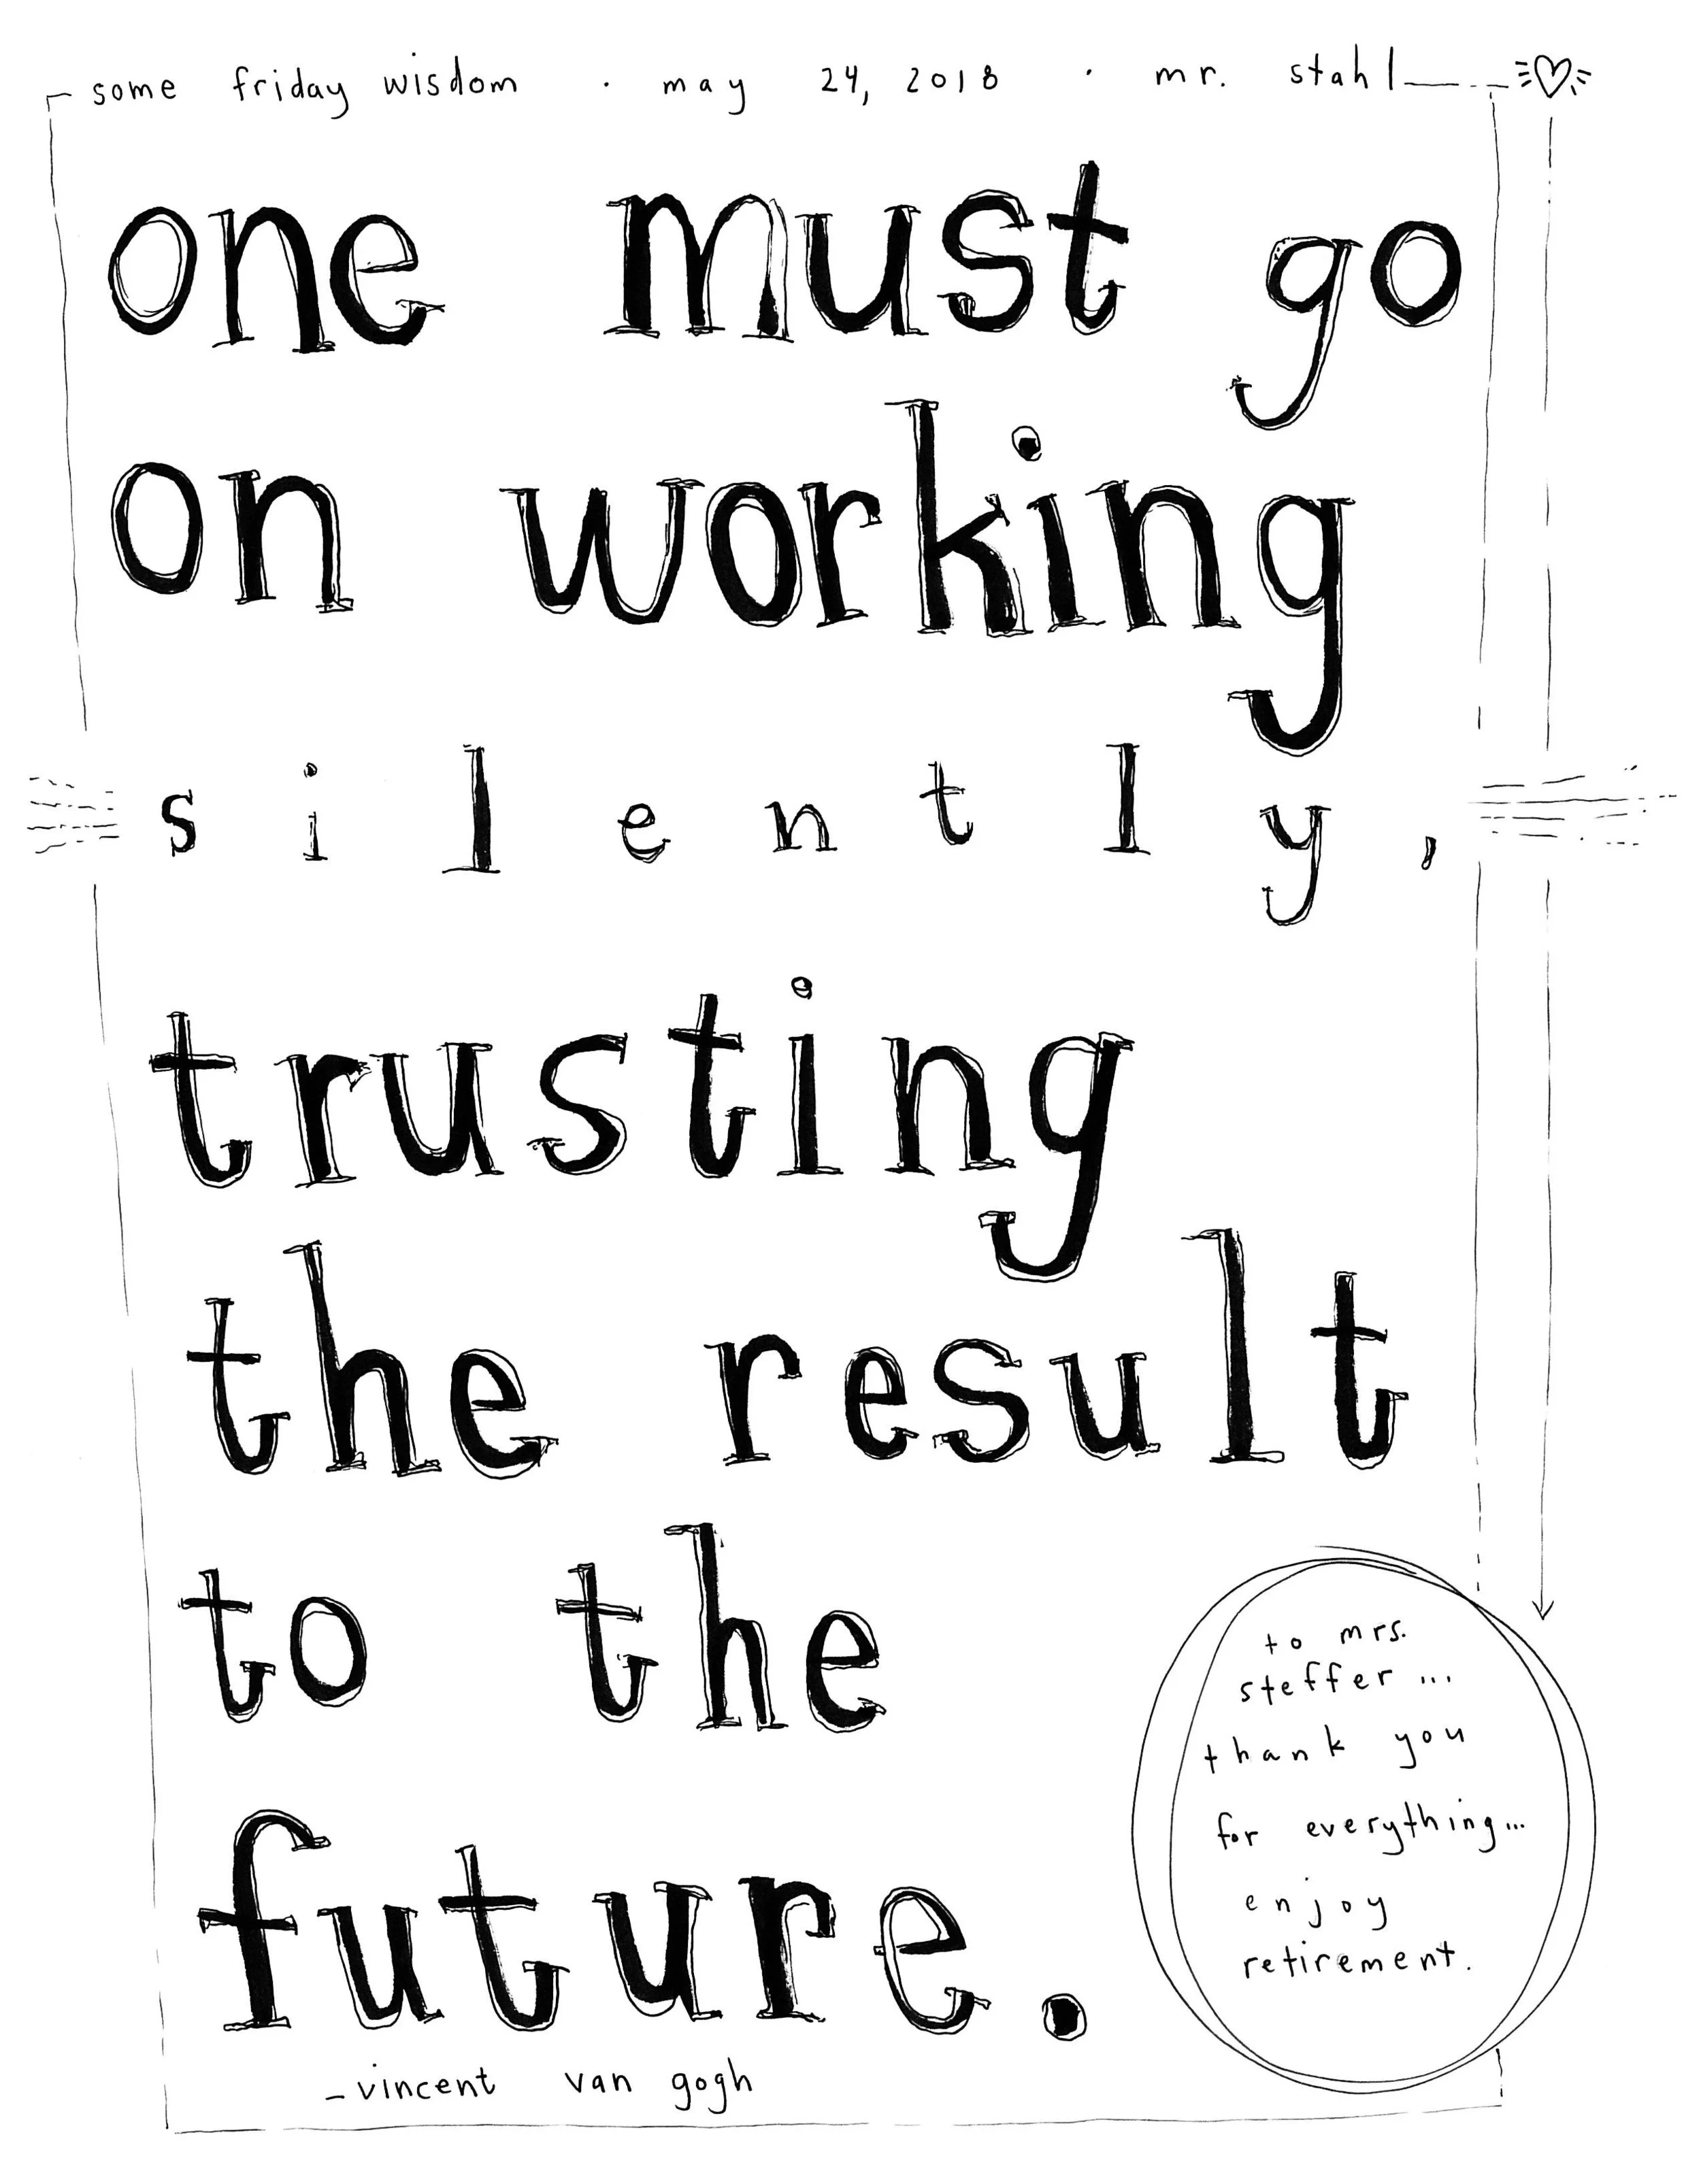 some friday wisdom · may 24, 2018 · mr. stahl
one must go
on working
silently,
trusting
the result
to the
future.
–vincent van gogh
to mrs.
steffer...
thank you
for everything...
enjoy
retirement.